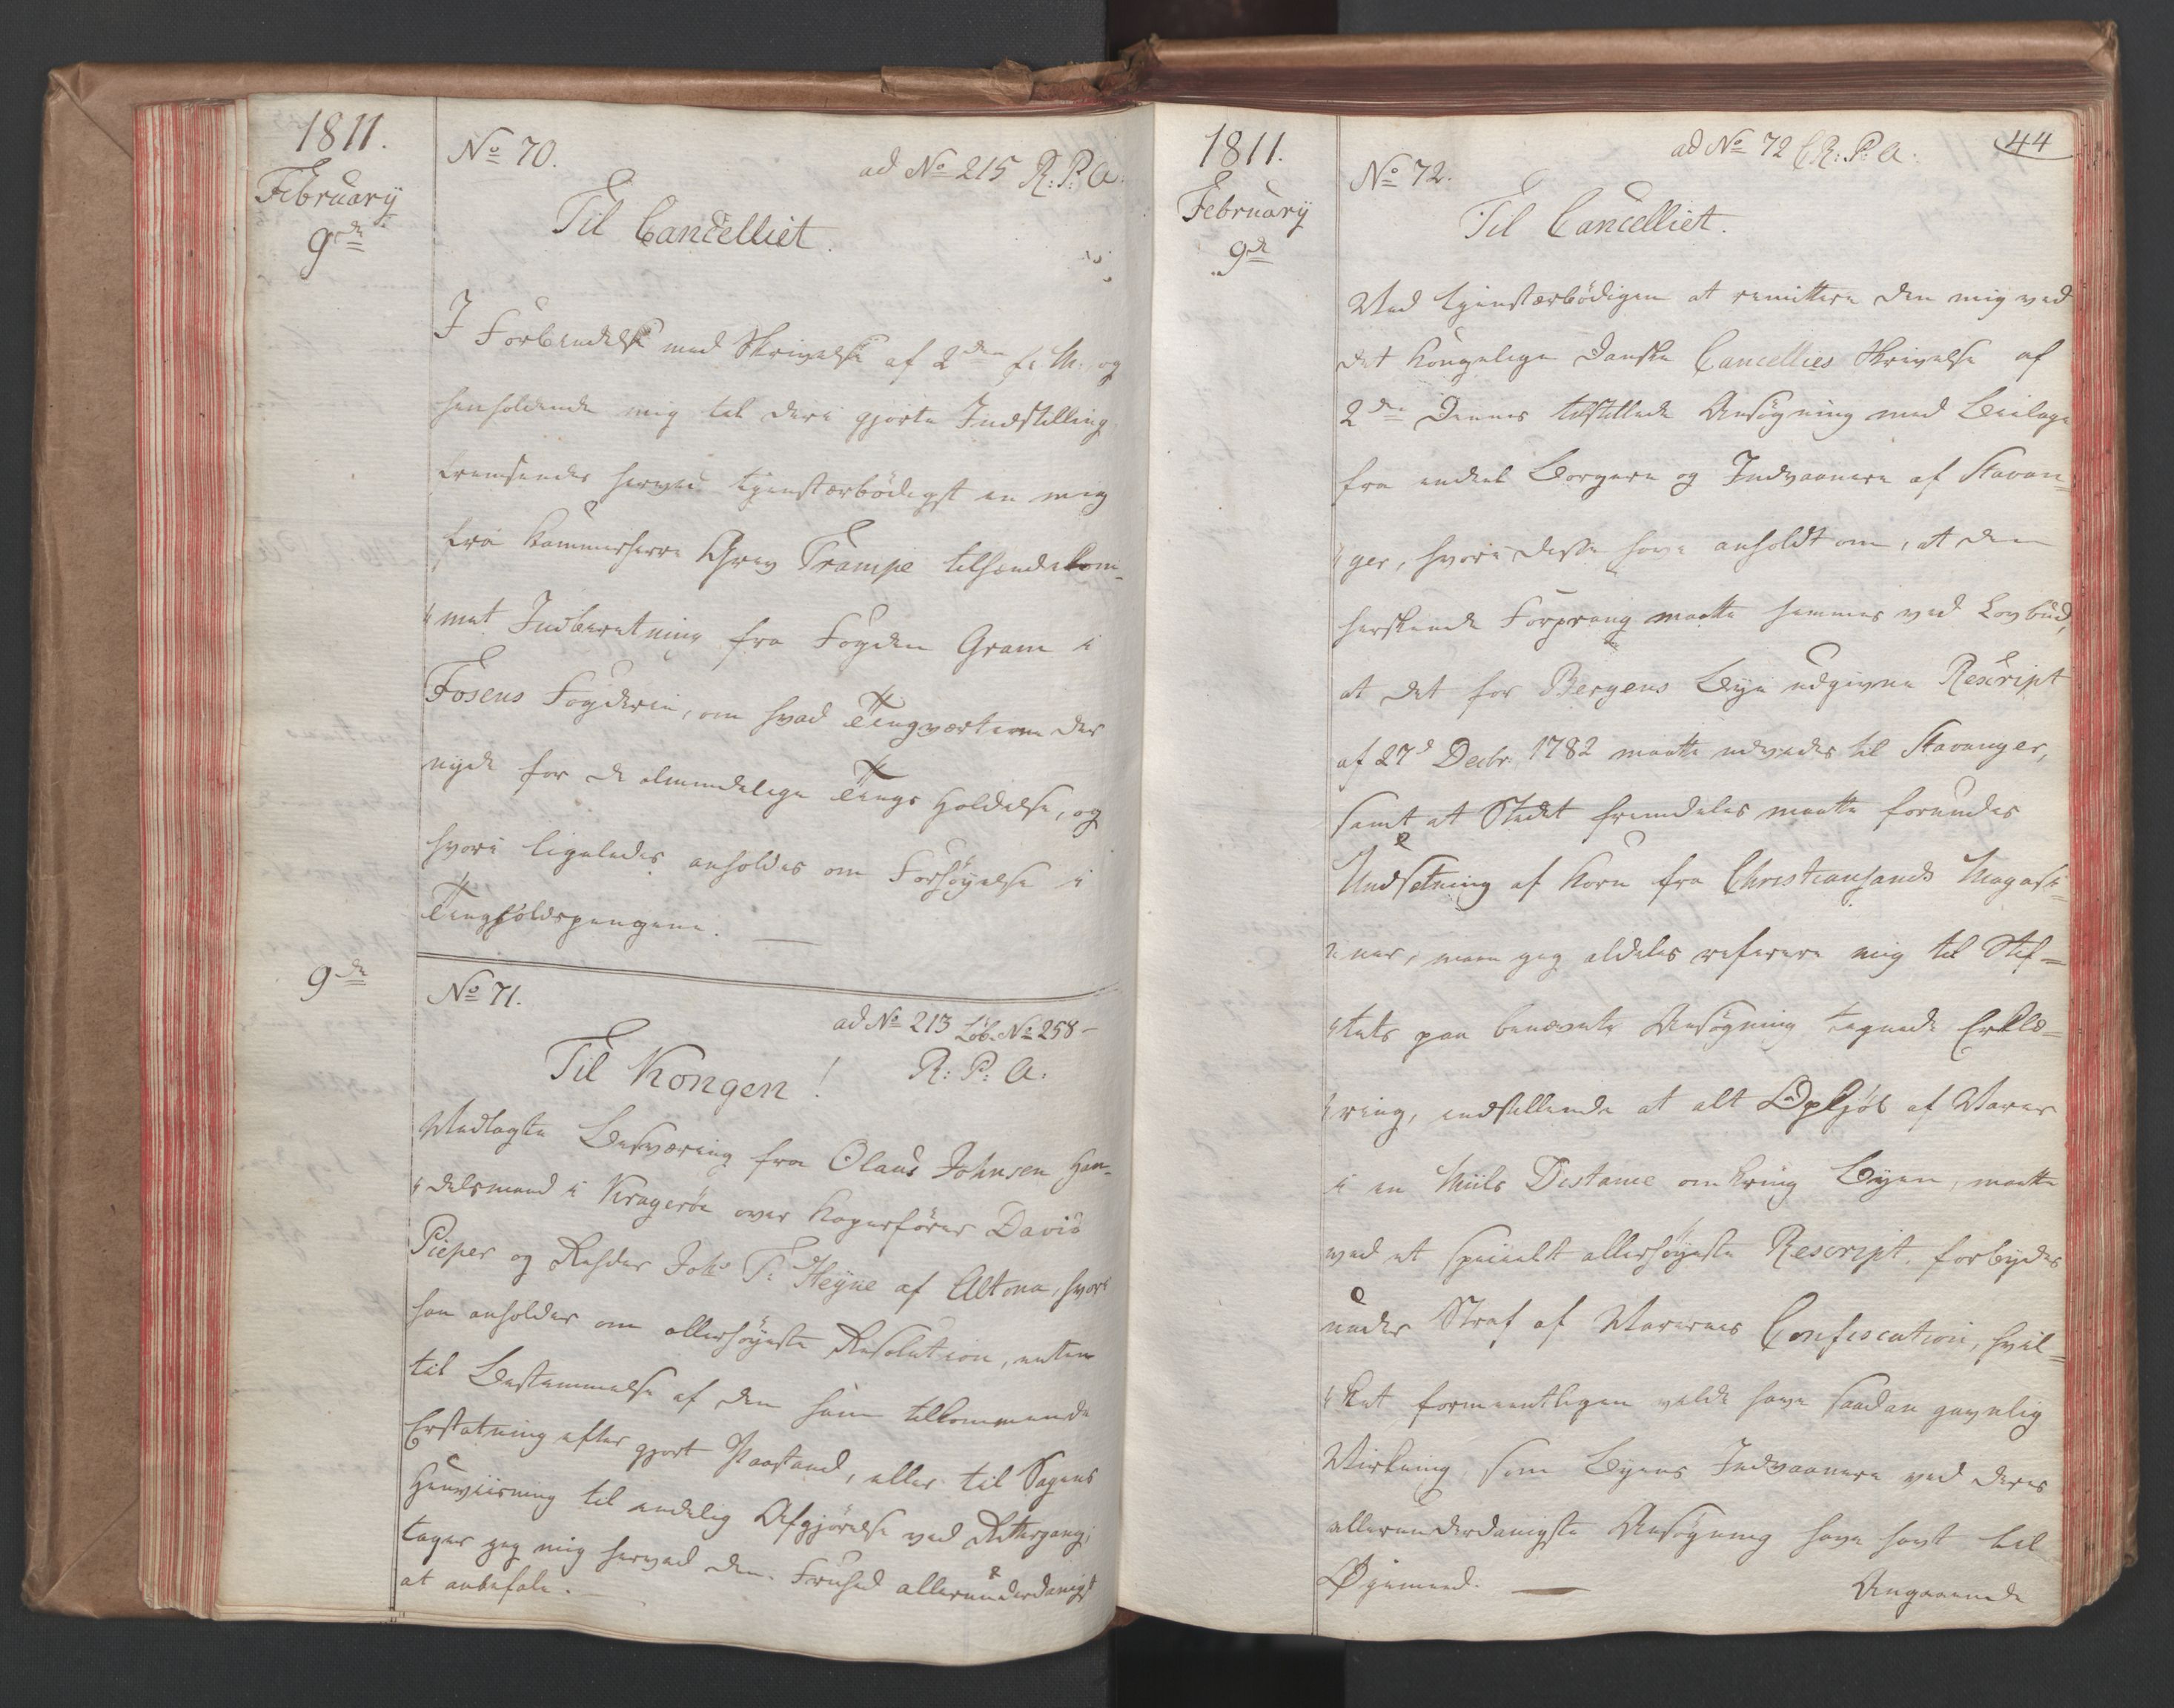 1811.
February
9de
No 70.
ad No 215 R: P: A.
Til Cancelliet.
I Forbindelse med Skrivelse af 2den f: M. og
henholdende mig til deri gjorte Indstilling,
fremsendes herved tjenstærbødigst en mig
fra Kammerherre Grev Trampe tilhændekom-
met Indberetning fra Fogden Gram i
Fosens Fogderie, om hvad Tingværterne der
nyde for de almindelige Tings Holdelse, og
hvori ligeledes anholdes om Forhøyelse i
Tingholdspengene.
9de
No 71.
ad No 213 Løb. No 258-
Til Kongen! R: P: A.
Vedlagte Besværing fra Olaus Johnsen Han-
delsmand i Kragerøe over Kaperfører David
Pieper og Reder Joh. T. Heyne af Altona, hvori
han anholder om allerhøyeste Resolution, enten
til Bestemmelse af den ham tilkommende
Erstatning efter gjort Paastand, eller til Sagens
Henviisning til endelig Afgjørelse ved Rettergang;
tager jeg mig herved den Friehed allerunderdanigst
at anbefale.
1811.
February
9de
44
ad No 72 C R: P: A.
No 72.
Til Cancelliet.
Ved tjenstærbødigen at remittere den mig ved
det kongelige danske Cancellies Skrivelse af
2den Dennes tilstillede Ansøgning med Beilage
fra endeel Borgere og Indvaanere af Stavan-
ger, hvori disse have anholdt om, at den
herskende Forprang maatte hemmes ved Lovbud,
at det for Bergens Bye udgivne Rescript
af 27d Decbr 1782 maatte udvides til Stavanger,
samt at Stedet fremdeles maatte forundes
Undsetning af Korn fra Christiansands Magasi-
ner, maae jeg aldeles referere mig til Stif-
tets paa benævnte Ansøgning tegnede Erklæ-
ring, indstillende at alt Opkjøb af Varer
i en Miils Distance omkring Byen, maatte
ved et specielt allerhøyeste Rescript forbydes
under Straf af Varernes Confiscation, hvil-
ket formeentligen vilde have saadan gavnlig
Virkning som Byens Indvaanere ved deres
allerunderdanigste Ansøgning have havt til
Øyemeed.
Angaaende